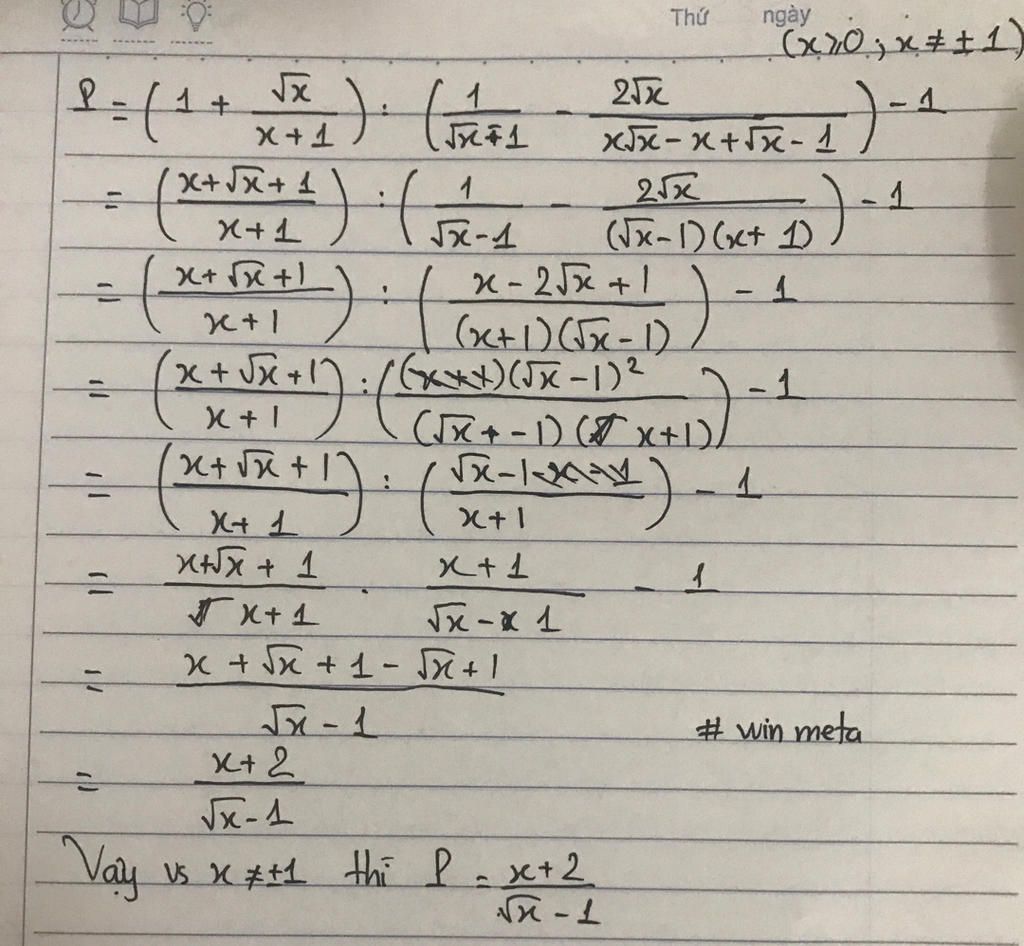 Thứ ngày
(x ≥ 0 ; x ≠ ± 1)
P = (1 + √x / (x + 1)) : (1 / (√x - 1) - 2√x / (x√x - x + √x - 1)) - 1
= ((x + √x + 1) / (x + 1)) : (1 / (√x - 1) - 2√x / ((√x - 1)(x + 1))) - 1
= ((x + √x + 1) / (x + 1)) : ((x - 2√x + 1) / ((x + 1)(√x - 1))) - 1
= ((x + √x + 1) / (x + 1)) : ((√x - 1)² / ((√x - 1)(x + 1))) - 1
= ((x + √x + 1) / (x + 1)) : ((√x - 1) / (x + 1)) - 1
= (x + √x + 1) / (x + 1) . (x + 1) / (√x - 1) - 1
= (x + √x + 1 - √x + 1) / (√x - 1)
# win meta
= (x + 2) / (√x - 1)
Vạy vs x ≠ ±1 thì P = (x + 2) / (√x - 1)